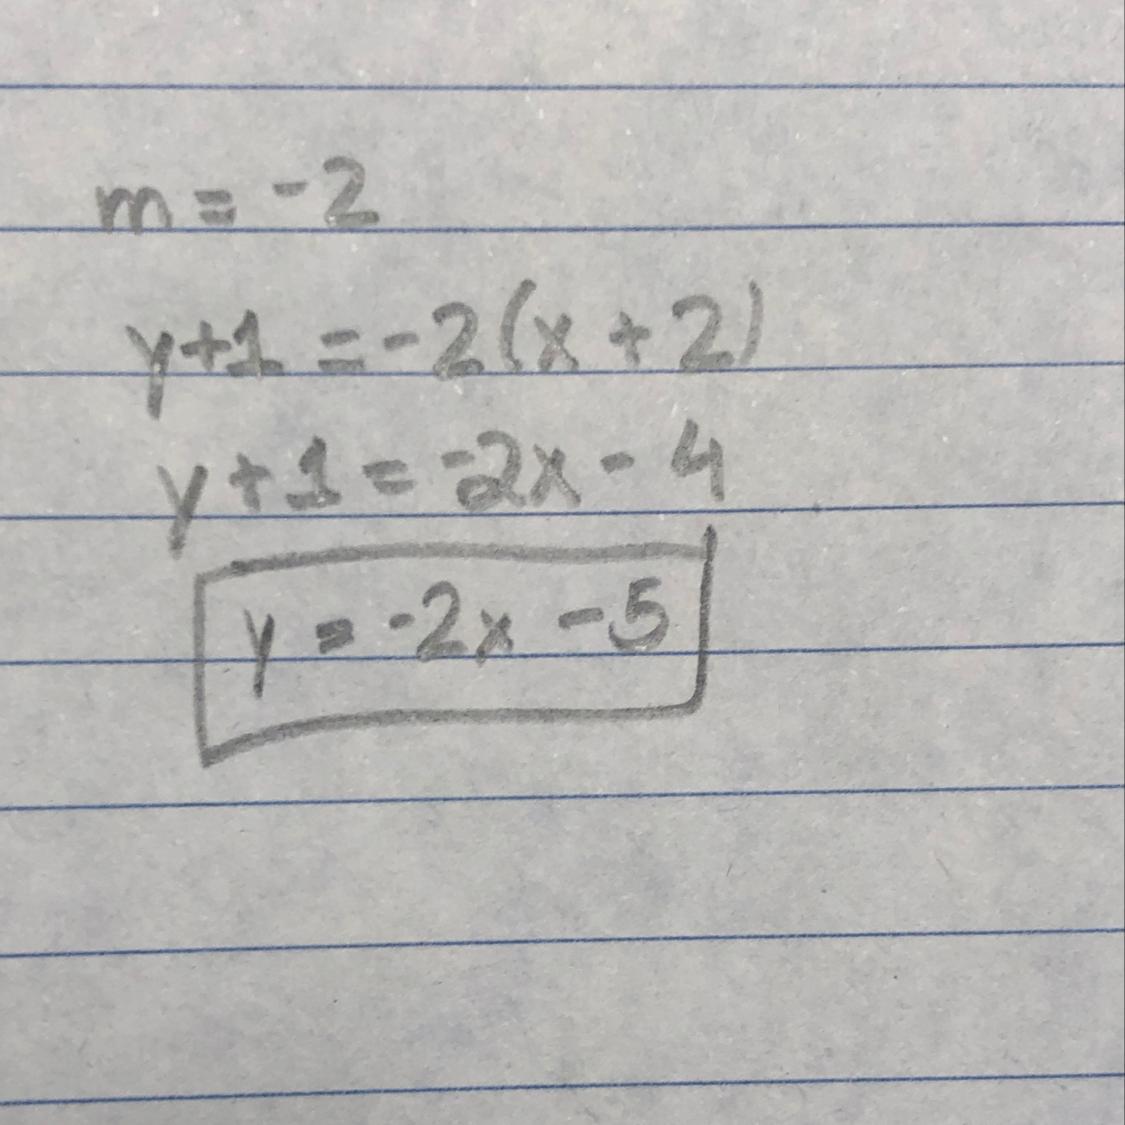 m = -2
y+1 = -2(x + 2)
y + 1 = -2x - 4
y = -2x - 5